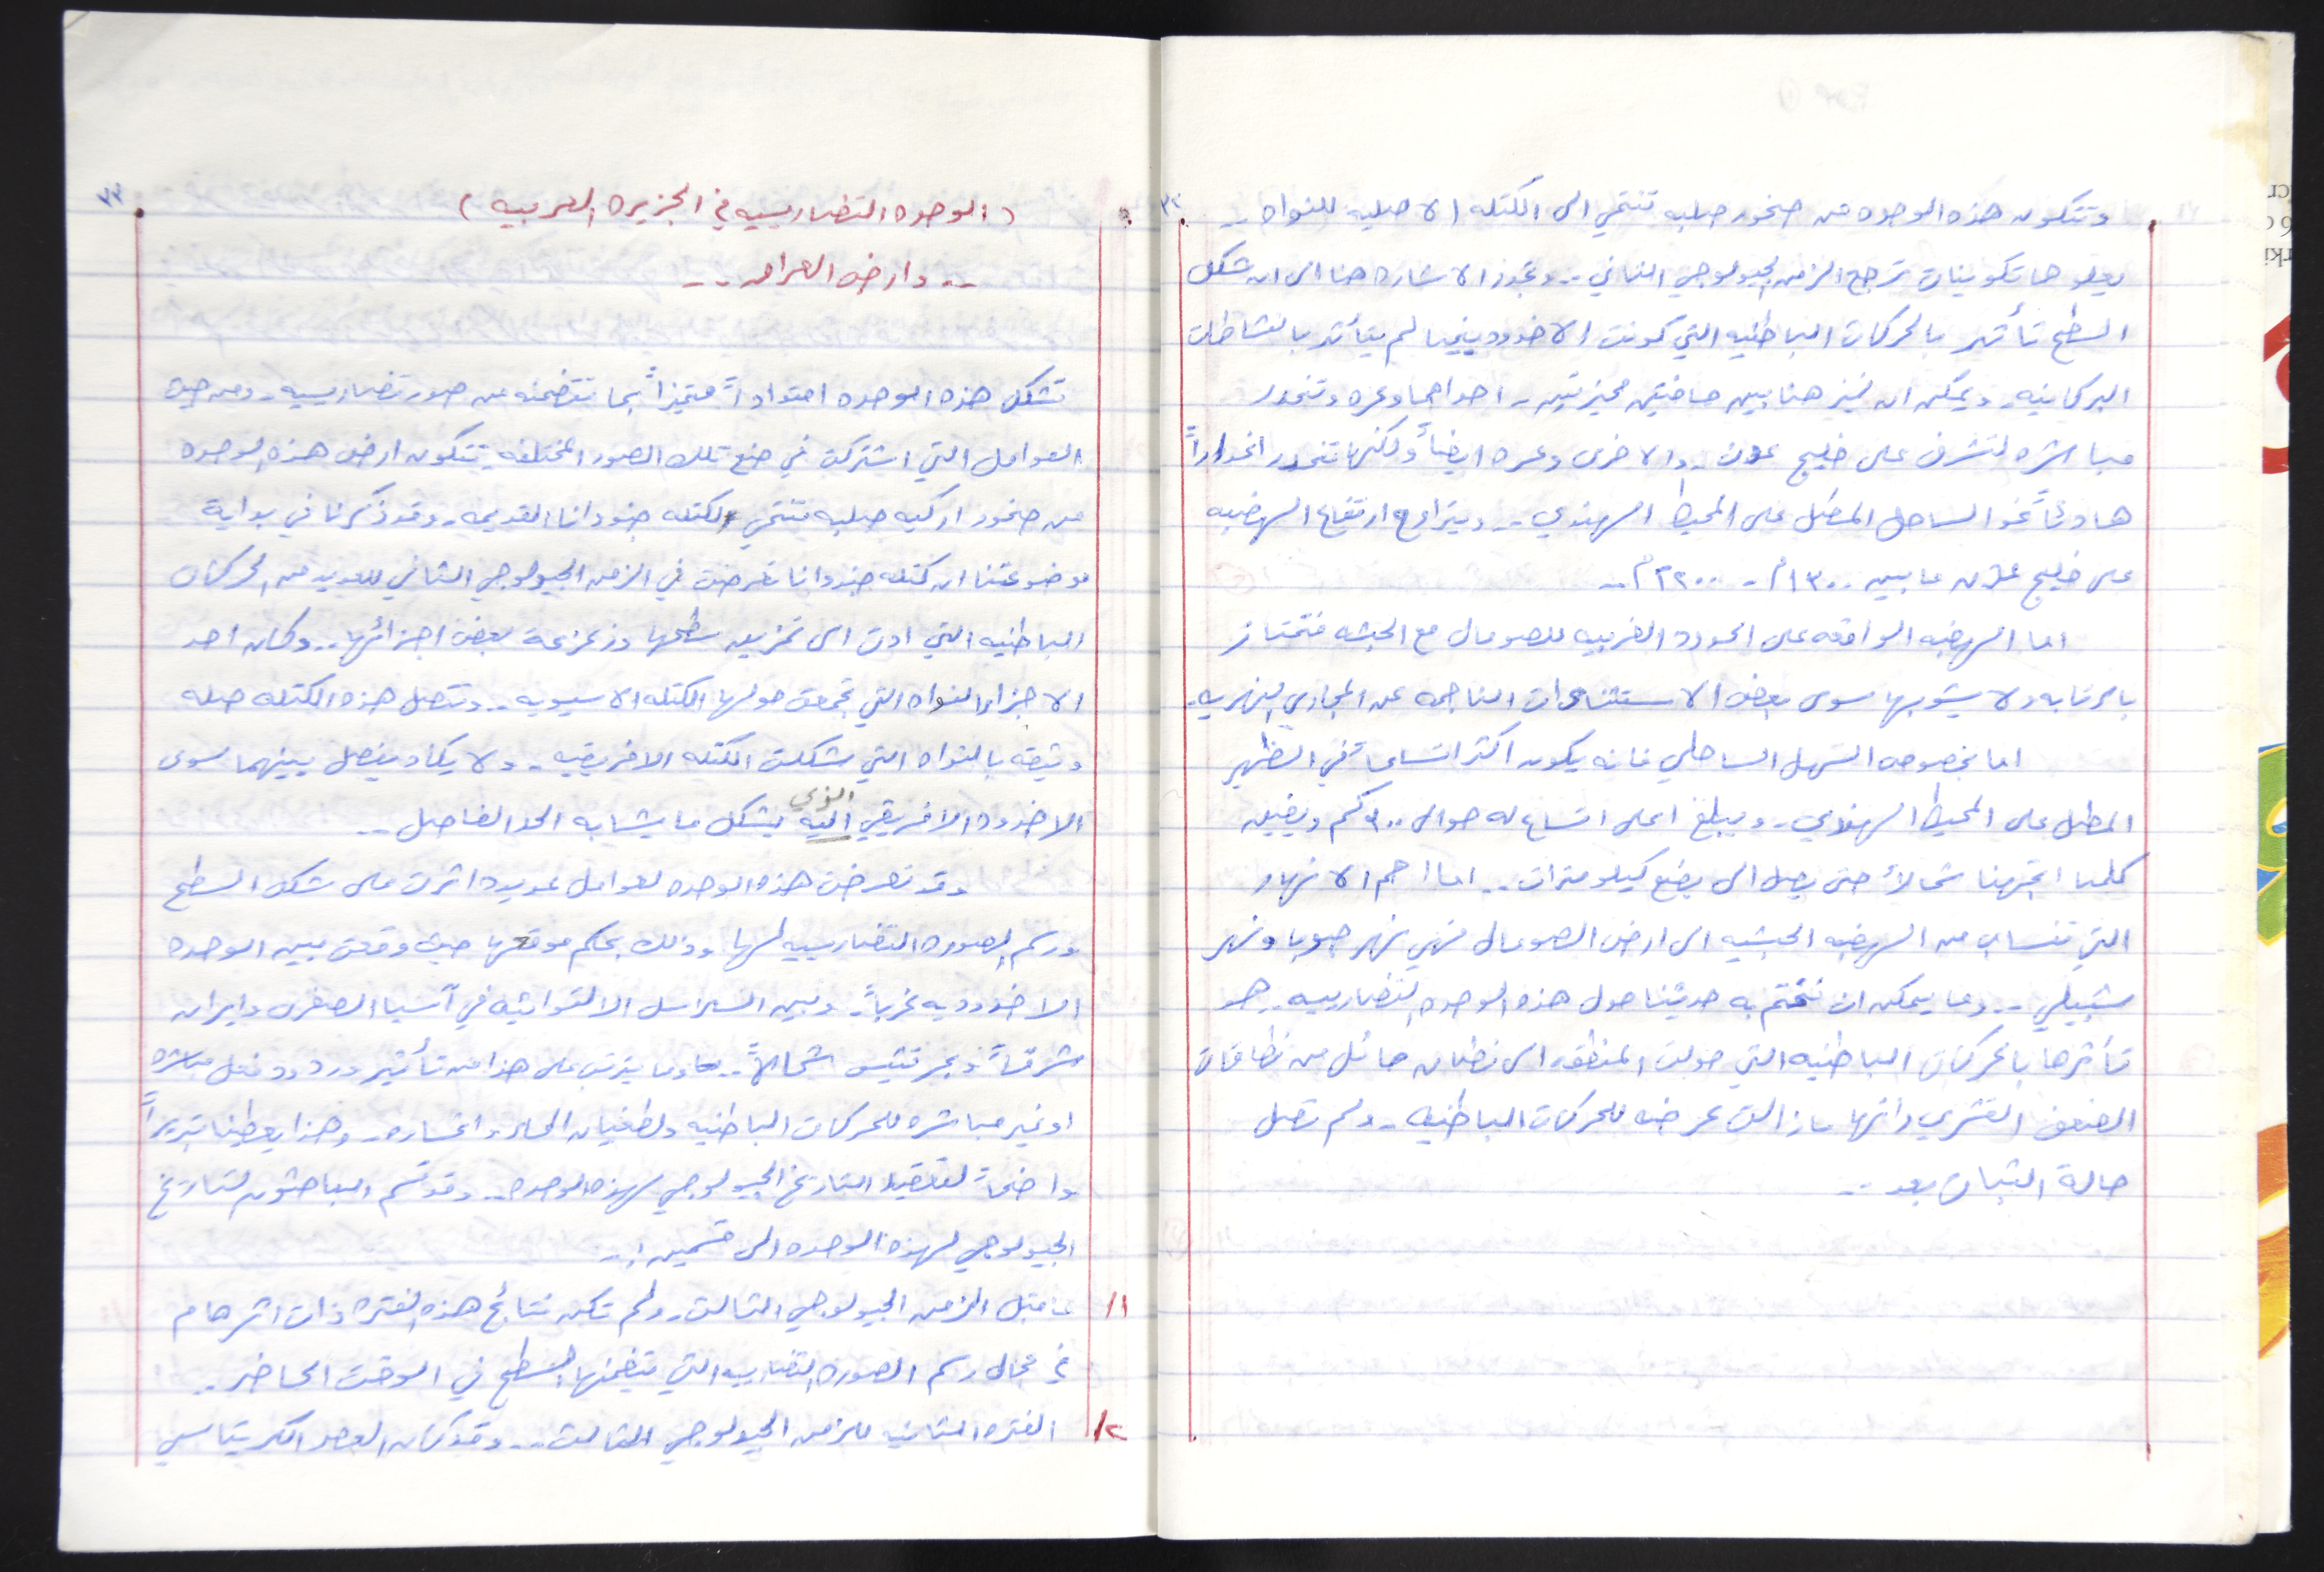 ٣٢
وتتكون هذه الوحده من صخور صلبه تنتمي الى الكتله الاصليه للنواه ..
يعلوها تكوينات ترجع الزمن الجيولوجي الثاني .. وتجدر الاشاره هنا الى ان شكل
السطح تأثر بالحركات الباطنيه التي كونت الاخدود بينما لم يتأثر بالنشاطات
البركانيه .. ويمكن ان نميز هنا بين حافتين مميزتين .. احداهما وعره وتنحدر
مباشره لتشرف على خليج عدن .. والاخرى وعره ايضاً ولكنها تنحدر انحداراً
هادئاً نحو الساحل المطل على المحيط الهندي .. ويتراوح ارتفاع الهضبه
على خليج عدن ما بين ١٣٠٠م - ٢٢٠٠م ..
اما الهضبه الواقعه على الحدود الغربيه للصومال مع الحبشه فتمتاز
بالرتابه ولا يشوبها سوى بعض الاستثناءات الناجمه عن المجاري النهريه.
اما بخصوص السهل الساحلي فانه يكون اكثر اتساعاً في الظهير
المطل على المحيط الهندي .. ويبلغ اعلى اتساع له حوالى ٣٠٠كم ويضيق
كلما اتجهنا شمالاً حتى يصل الى بضع كيلومترات .. اما اهم الانهار
التي تنساب من الهضبه الحبشيه الى ارض الصومال فهي نهر جوبا ونهر
شبيلي .. وما يمكن ان نختتم به حديثنا حول هذه الوحده التضاريسيه .. هو
تأثرها بالحركات الباطنيه التي حولت المنطقه الى نطاق هائل من نطاقات
الضعف القشري وانها مازالت عرضه للحركات الباطنيه .. ولم تصل
حالة الثبات بعد ..
٣٣
( الوحده التضاريسيه في الجزيره العربيه )
.. وارض العراق ..
تشكل هذه الوحده امتداداً متميزاً بما تتضمنه من صور تضاريسيه .. ومن حيث
العوامل التي اشتركت في صنع تلك الصور المختلفه تتكون ارض هذه الوحده
من صخور اركيه صلبه تنتمي لكتله جندوانا القديمه .. وقد ذكرنا في بداية
موضوعنا ان كتله جندوانا تعرضت في الزمن الجيولوجي الثاني للعديد من الحركات
الباطنيه التي ادت الى تمزيق سطحها وزعزعة بعض اجزائها .. وكان احد
الاجزاء النواه التي تجمعت حولها الكتله الاسيويه .. وتتصل هذه الكتله صله
وثيقه بالنواه التي شكلت الكتله الافريقيه .. ولا يكاد يفصل بينهما سوى
الاخدود الافريقي الذي يشكل ما يشابه الحد الفاصل ..
وقد تعرضت هذه الوحده لعوامل عديده اثرت على شكل السطح
ورسم الصوره التضاريسيه لها وذلك بحكم موقعها حيث وقعت بين الوحده
الاخدوديه غرباً .. وبين السلاسل الالتوائيه في آسيا الصغرى وايران
شرقاً وبحر تثيس شمالاً .. وما يترتب على هذا من تأثير وردود فعل مباشره
او غير مباشره للحركات الباطنيه ولطغيان الماء وانحساره .. وهذا يعطينا تبريراً
واضحاً لتعقيد التاريخ الجيولوجي لهذه الوحده .. وقد قسم الباحثون لتاريخ
الجيولوجي لهذه الوحده الى قسمين :-
١/ ما قبل الزمن الجيولوجي الثالث .. ولم تكن نتائج هذه الفتره ذات اثر هام
في مجال رسم الصوره التضاريسيه التي يتضمنها السطح في الوقت الحاضر ..
٢/ الفتره الثانيه للزمن الجيولوجي الثالث .. وقد كان العصر الكريتاسي